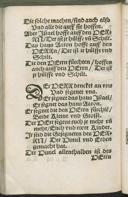 Die solche machen/ sind auch also
Vnd alle die auff sie hoffen.
Aber Israel hoffe auff den HE
Der ist jr hülffe vnd Schilt.
Das haus Aaron hoffe auff den
HERRN/ Der ist jr hülffe vnd
Schilt.
Die den HERRN fürchten/ hoffen
auch auff den HERRN/ Der ist
jr hülffe vnd Schilt.
DEr HERR dencket an vns
Vnd segnet vns.
Er segnet das haus Israel/
Er segnet das haus Aaron.
Er segnet die den HERRN fürchten/
Beide Kleine vnd Grosse.
Der HERR segne euch je mehr vnd
mehr/ Euch vnd ewre Kinder.
Ir seid die Gesegneten des HERRN
Der Himel vnd Erden
gemacht hat.
Der Himel allenthalben ist des
HErrn